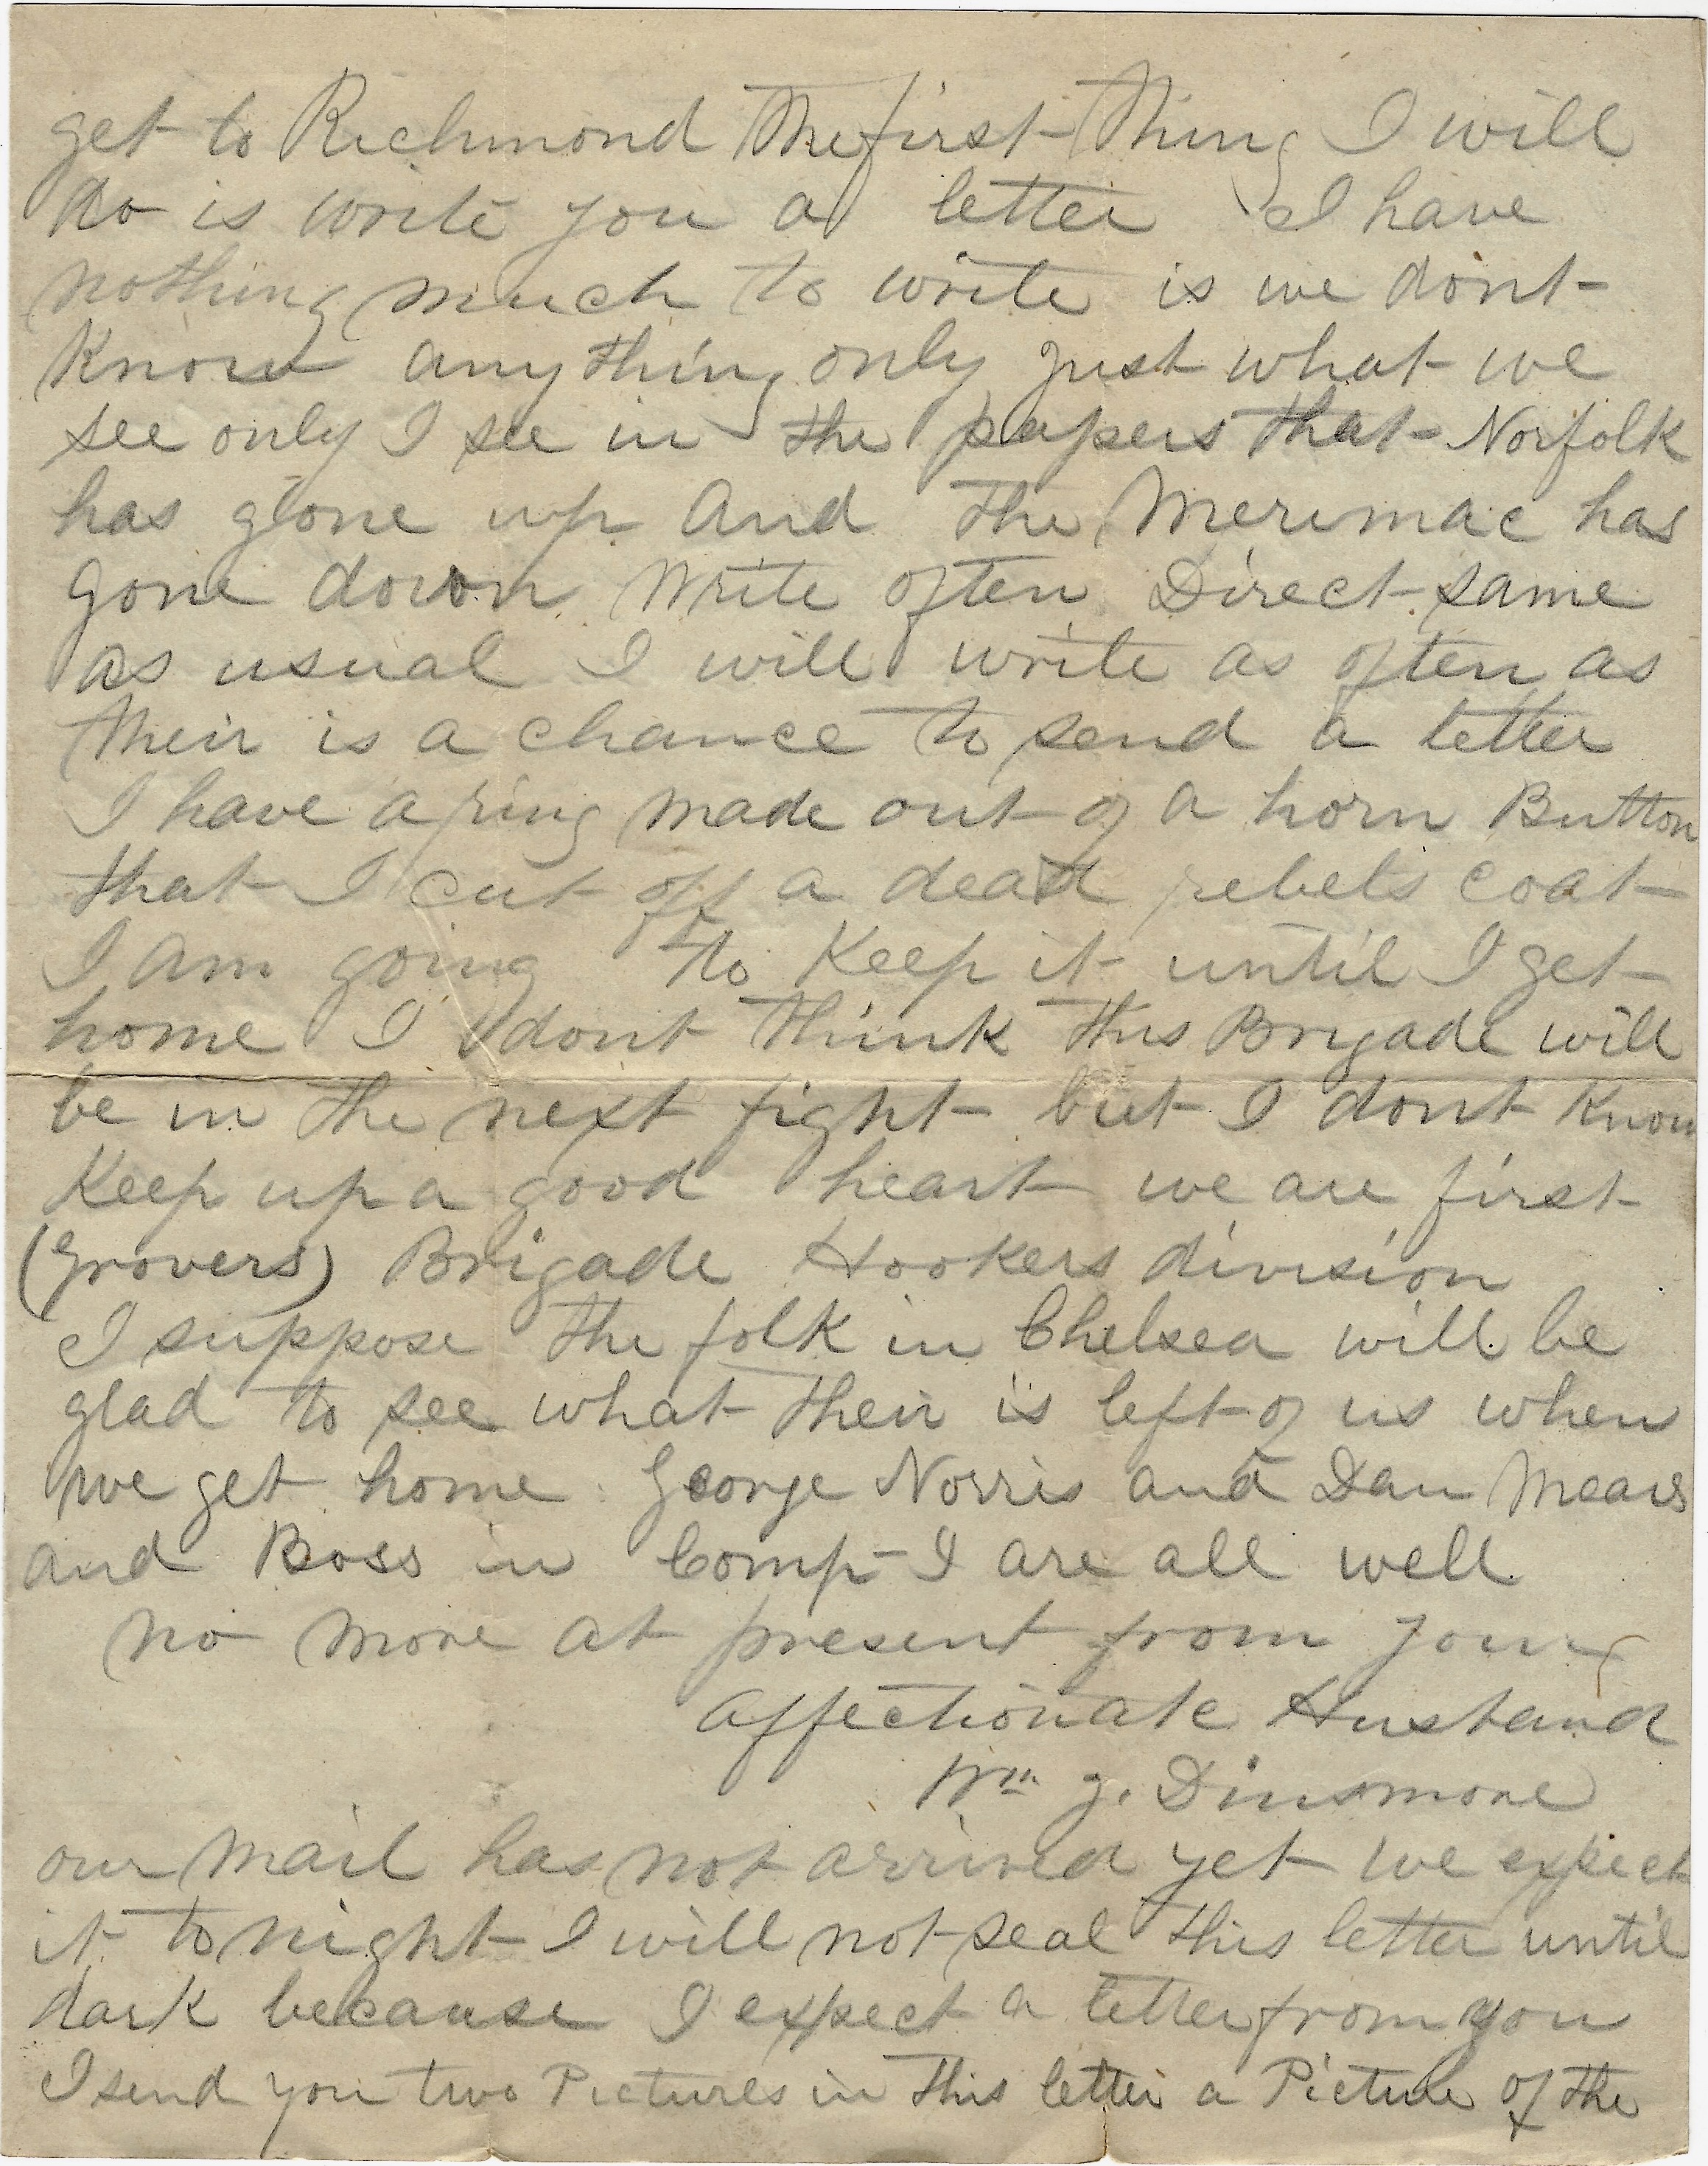 get to Richmond the first thing I will
do is write you a letter I have
nothing much to write is we dont
know any thing only just what we
see only I see in the papers that Norfolk
has gone up And the Merimac has
gone down Write often Direct same
as usual I will write as often as
their is a chance to send a letter
I have a ring made out of a horn Button
that I cut off a dead rebels coat
I am going to Keep it until I get
home I dont think this Brigade will
be in the next fight but I dont Know
Keep up a good heart we are first
(Grovers) Brigade Hookers division
I suppose the folk in Chelsea will be
glad to see what their is left of us when
we get home George Norris and Dan Mears
and Boss in Comp I are all well
no more at present from your
affectionate Husband
Wm g. Dinsmore
our mail has not arrived yet we expect
it to night I will not seal this letter until
dark because I expect a letter from you
I send you two Pictures in this letter a Picture of the